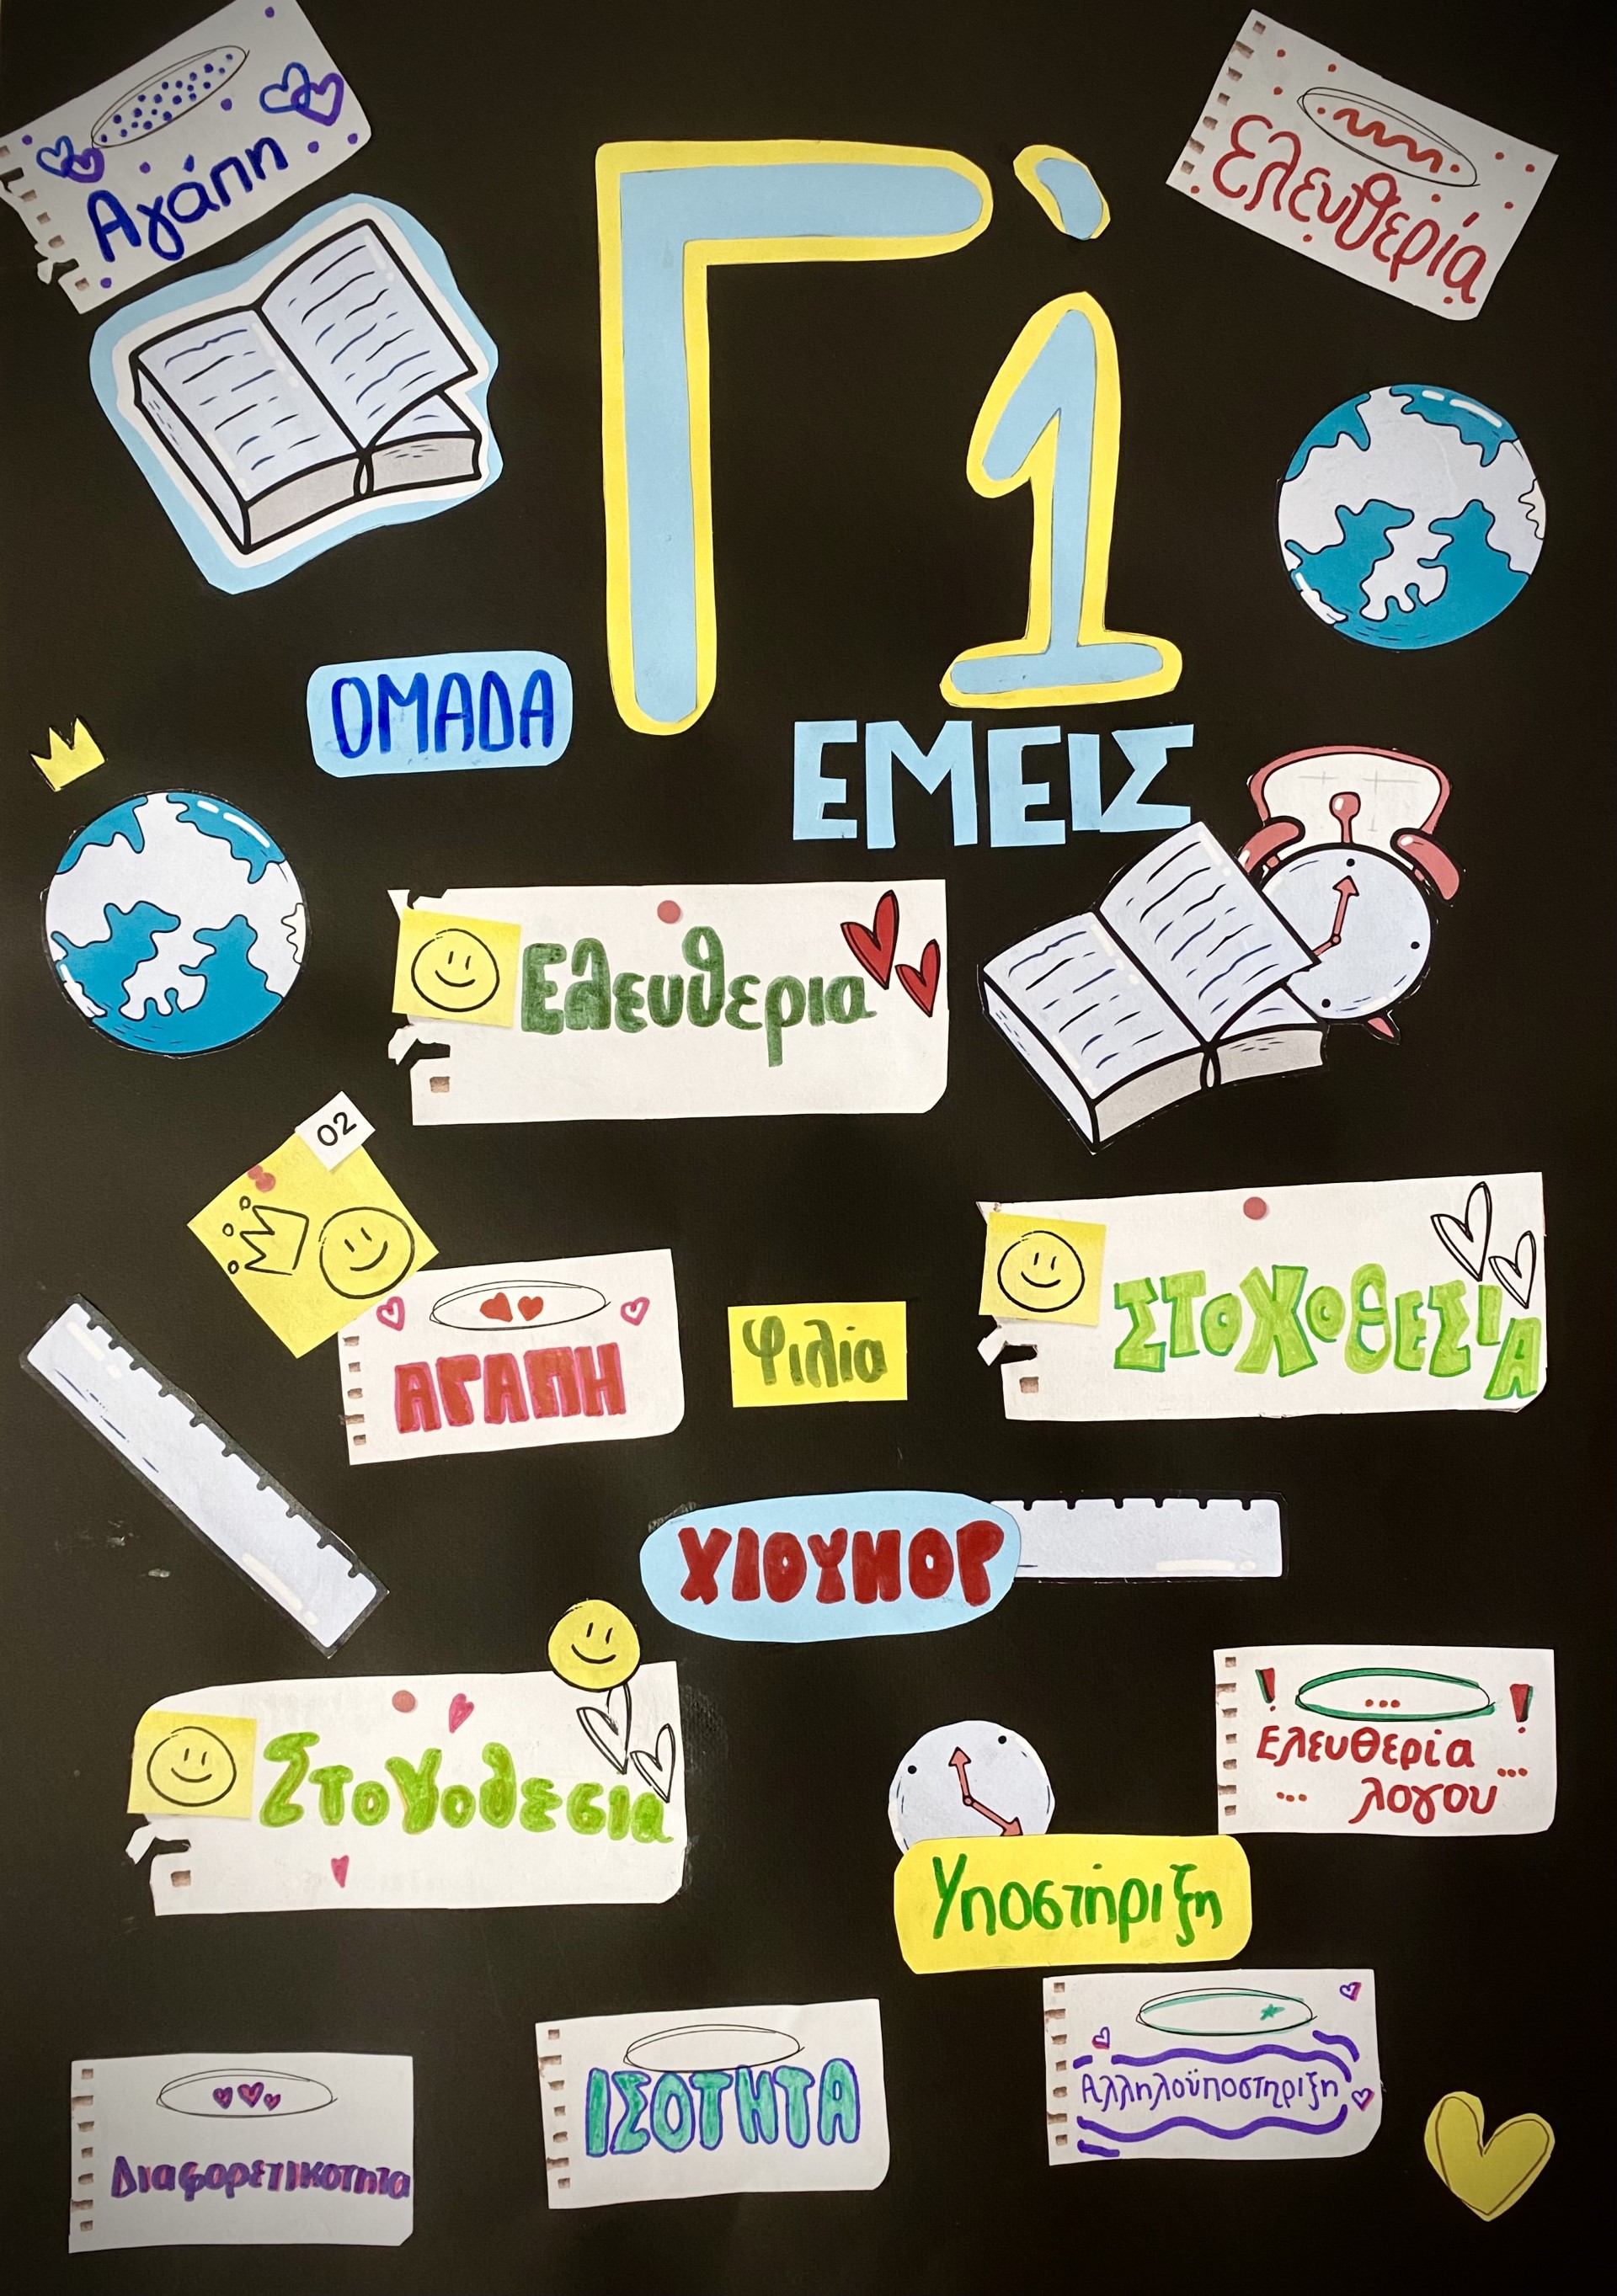 Αγάπη
Ελευθερία
Γ'1
ΟΜΑΔΑ
ΕΜΕΙΣ
Ελευθερια
02
ΑΓΑΠΗ
Φιλία
ΣΤΟΧΟΘΕΣΙΑ
ΧΙΟΥΜΟΡ
Στοχοθεσια
Ελευθερία
λογου
Υποστήριξη
Αλληλοϋποστηριξη
ΙΣΟΤΗΤΑ
Διαφορετικοτητα